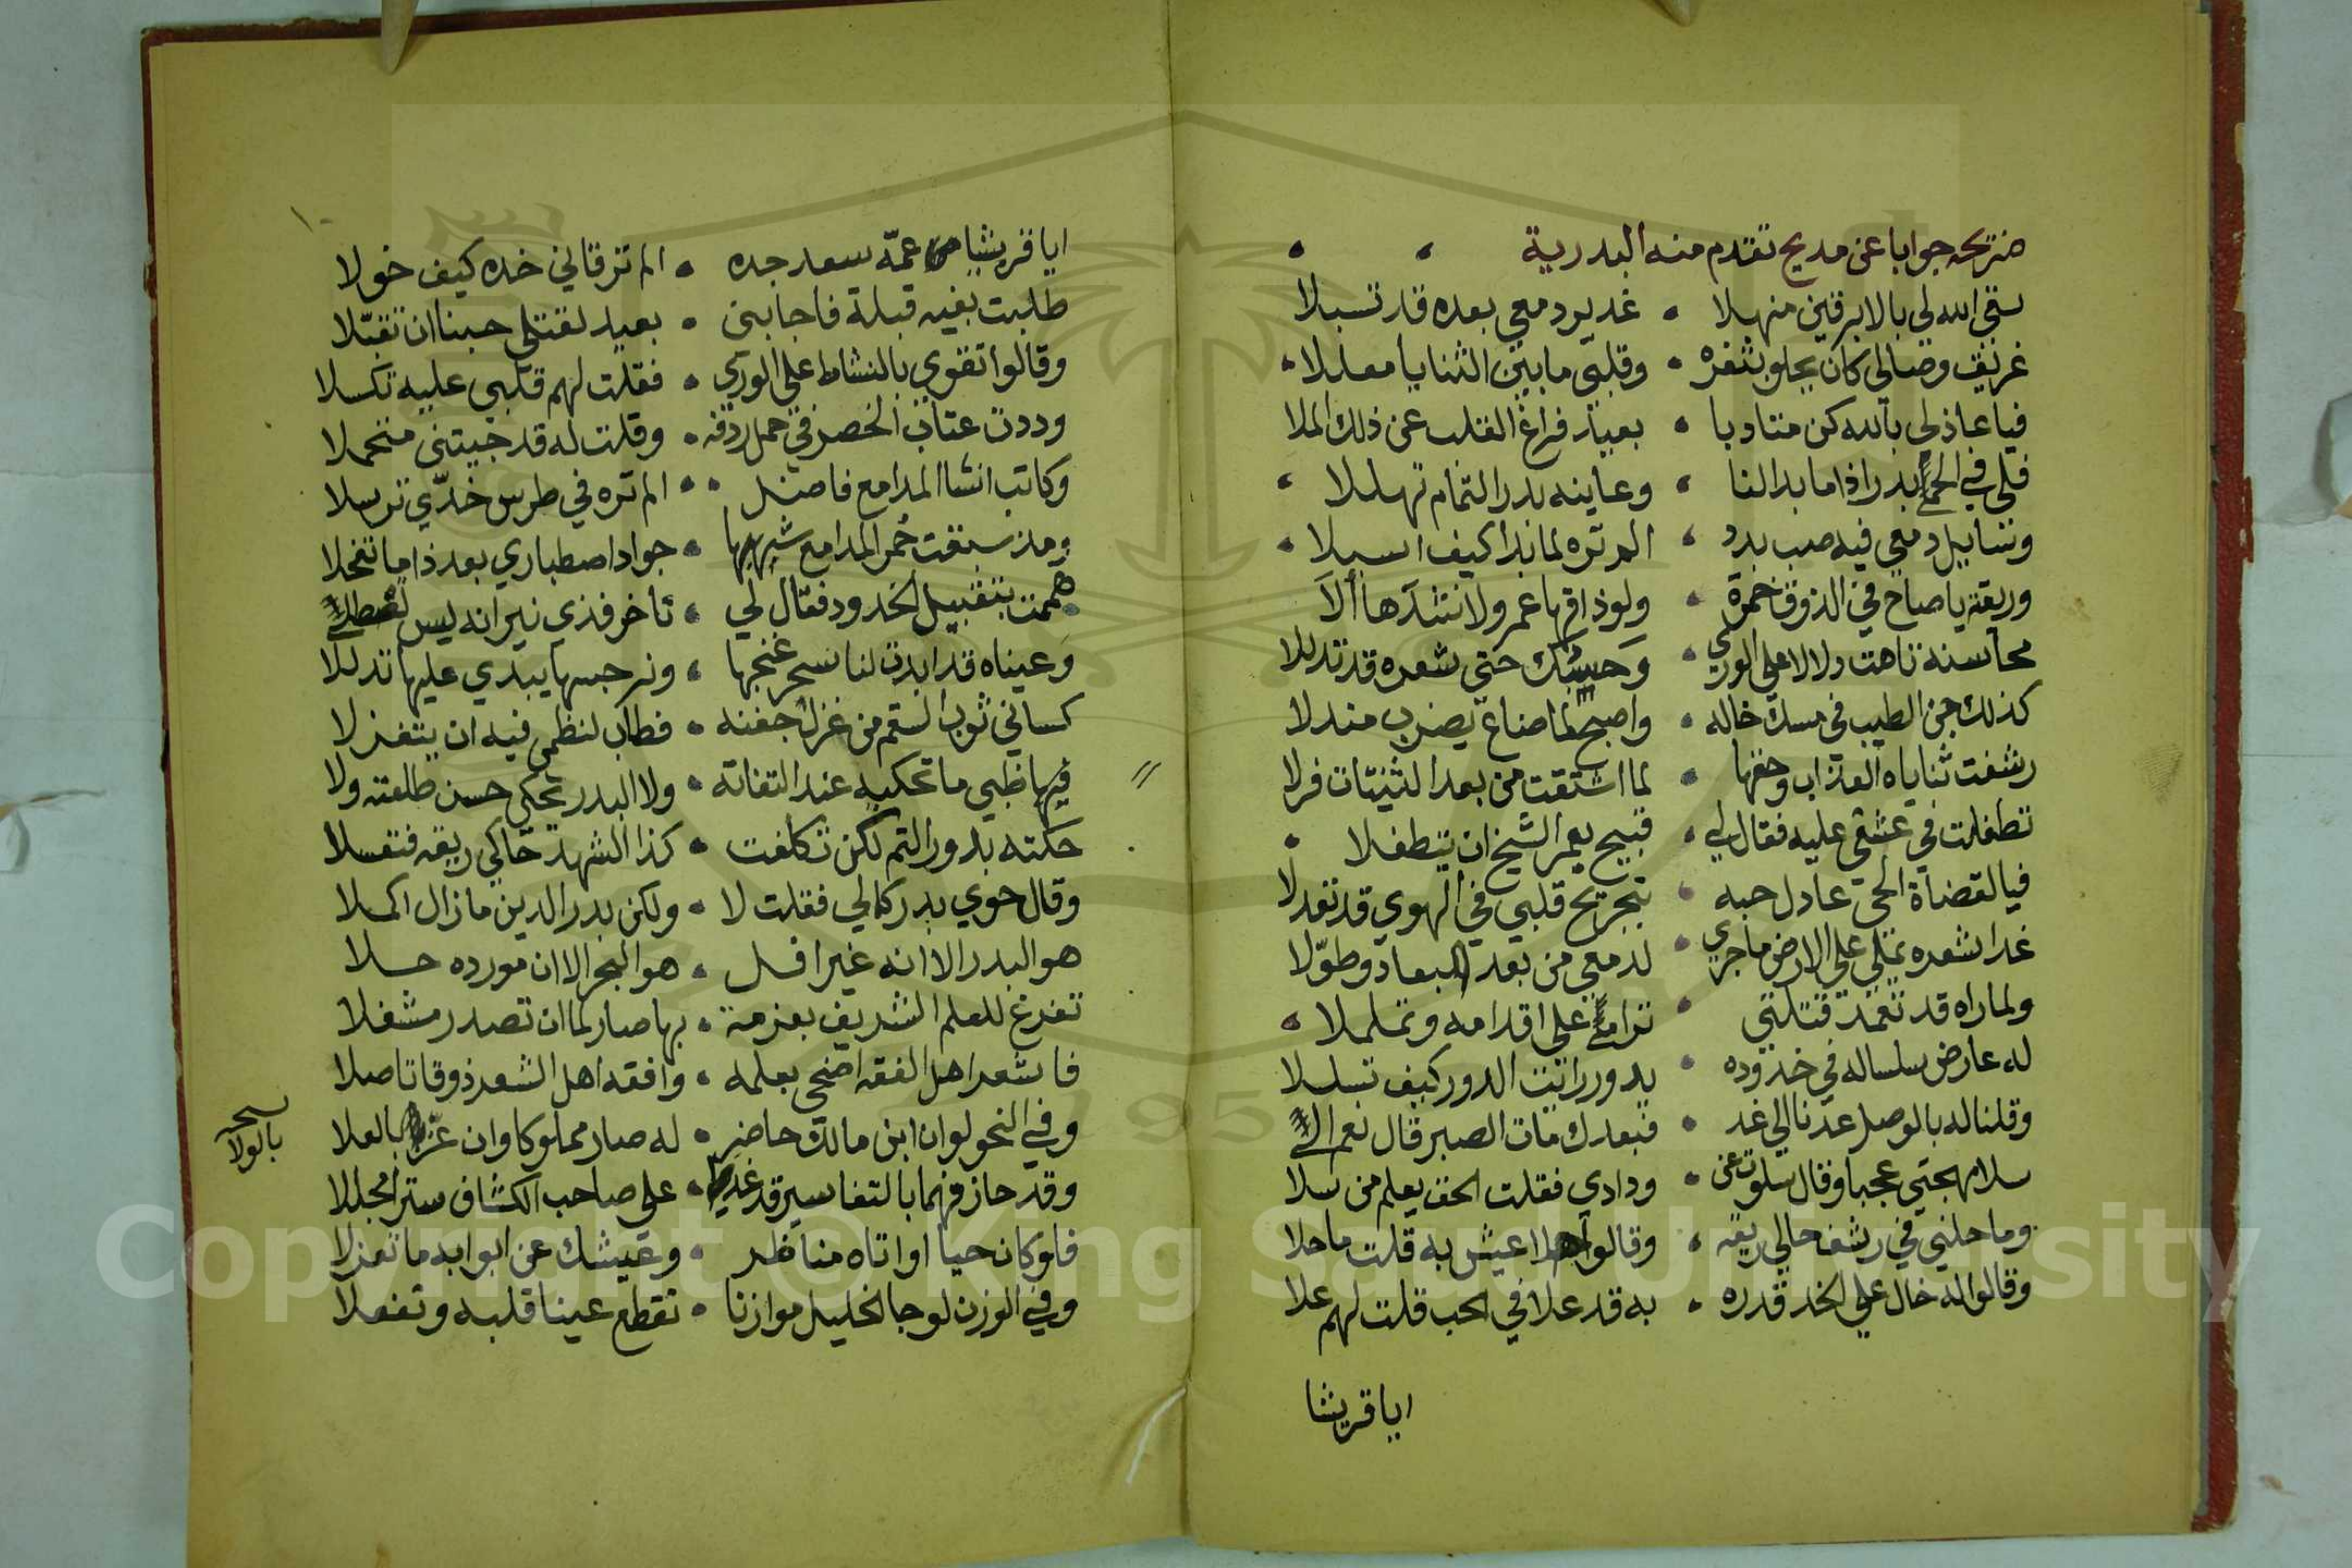 ضريحه جوابا عن مديح تقدم منه البدرية
سقي الله لي بالابرقين منهلا • غدير دمعي بعده قد تسبلا
غريق وصالي كان يحلو بثغره • وقلبي ما بين الثنايا معللا
فيا عاذلي بالله كن متادبا • بعيد فراغ القلب عن ذلك الملا
فلي في الحمي بدر اذا ما بدا لنا • وعاينه بدر التمام تهللا
وسايل دمعي فيه صب بدد • الم تره لما بدا كيف اسبلا
وريقة يا صاح في الذوق خمرة • ولو ذاقها عمرو لانشدها ألا
محاسنه تاهت دلالا علي الوري • وحسبك حتي شعره قد تدللا
كذلك جن الطيب في مسك خاله • واصبح لما ضاع يضرب مندلا
رشفت ثناياه العذاب وحقها • لما اشتقت من بعد الثنيات قرلا
تطفلت في عشقي عليه فقال لي • قبيح بعمر الشيخ ان يتطفلا
فيا لقضاة الحي عادل حبه • بتجريح قلبي في الهوي قد تعدلا
غدا شعره يملي علي الارض ما جري • لدمعي من بعد البعاد وطولا
ولما راه قد تعمد قتلتي • ترامي علي اقدامه وتململا
له عارض سلساله في خدوده • بدور رايت الدور كيف تسلسلا
وقلنا له بالوصل عدنا الي غد • فبعدك مات الصبر قال نعم الي
سلا مهجتي عجبا وقال سلوت عن • ودادي فقلت الحق يعلم من سلا
وما حل لي في رشف حالي ريقه • وقالوا اهلا عيش به قلت ما حلا
وقالوا له خال علي الخد قدره • به قد علا في الحب قلت لهم علا
ايا قريشا
ايا قريشا عمّه سعد جده • الم تر قاني خده كيف خولا
طلبت بفيه قبلة فاجابني • بعيد لقتلي حبنا ان تقبّلا
وقالوا تقوي بالنشاط علي الوري • فقلت لهم قلبي عليه تكسلا
وددت عتاب الخصر في حمل ردفه • وقلت له قد جيتني متحملا
وكاتب انشا المدامع فاضل • الم تره في طرس خدّي ترسلا
ومذ سبقت حمر المدامع شهبها • جواد اصطباري بعد ذا ما تخلا
هممت بتقبيل الخدود فقال لي • تاخر فذي نيرانه ليس تصطلي
وعيناه قد ابدت لنا سحر غنجها • ونرجسها يبدي عليها تدللا
كساني ثوب السقم من غزل جفنه • فطاب لنظمي فيه ان يتغزلا
فيها ظبي ما تحكيه عند التفاته • ولا البدر تحكي حسن طلعته ولا
حكته بدور التم لكن تكلفت • كذا الشهد حاكي ريقه فتعسلا
وقال حوي بدر كمالي فقلت لا • ولكن بدر الدين ما زال اكملا
هو البدر الا انه غير افل • هو البحر الا ان مورده حلا
تفرغ للعلم الشريف بعزمة • بها صار لما ان تصدر مشغلا
فاشعر اهل الفقه اضحي بعلمه • وافقه اهل الشعر ذوقا تاصلا
وفي النحو لو ان ابن مالك حاضر • له صار مملوكا وان عزّ بالعلا
بالولا
وقد حاز فهما بالتفاسير قد غدا • علي صاحب الكشاف سترا مجللا
فلو كان حيا او اتاه مناظر • وعيشك عن ابوابه ما تعزلا
وفي الوزن لو جا الخليل موازنا • تقطع عينا قلبه وتفصلا